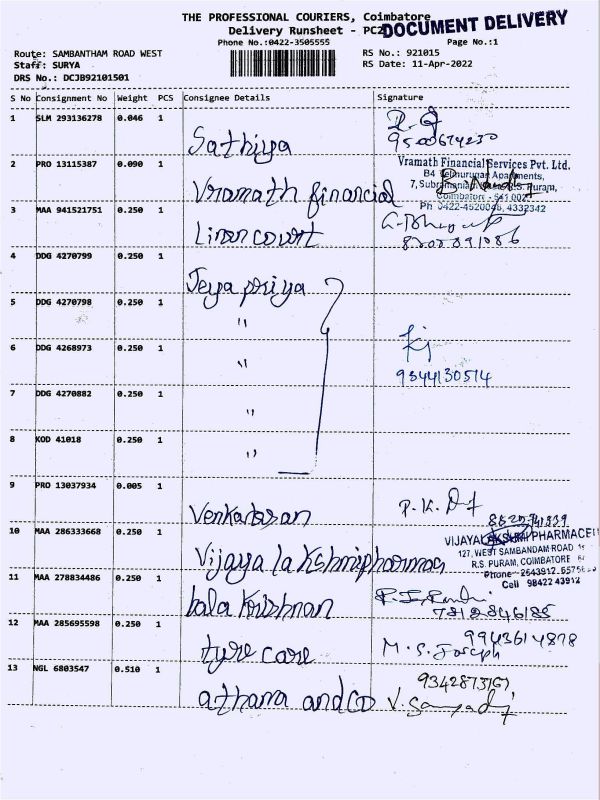 THE PROFESSIONAL COURIERS, Coimbatore
DOCUMENT DELIVERY
Delivery Runsheet - PCZ
Phone No.:0422-3505555
Page No.:1
Route: SAMBANTHAM ROAD WEST
RS No.: 921015
Staff: SURYA
RS Date: 11-Apr-2022
DRS No.: DCJB92101501
S No Consignment No Weight PCS Consignee Details Signature
1 SLM 293136278 0.046 1
Sathiya
2 PRO 13115387 0.090 1
Vramath Financial Services Pvt. Ltd.
B4 Velmurugan Apartments,
Vramath financial
Coimbatore - 641 002
Ph 0422-4520046, 4332342
3 MAA 941521751 0.250 1
4 DDG 4270799 0.250 1
Jeya priya
5 DDG 4270798 0.250 1
"
6 DDG 4268973 0.250 1
"
9344130514
7 DDG 4270882 0.250 1
"
8 KOD 41018 0.250 1
"
9 PRO 13037934 0.005 1
10 MAA 286333668 0.250 1
VIJAYALAKSHMI PHARMACEU
127, WEST SAMBANDAM ROAD
R.S. PURAM, COIMBATORE
Phone 2543912
Cell 98422 43912
Vijaya lakshmi pharmas
11 MAA 278834486 0.250 1
bala krishnan
7812846185
12 MAA 285695598 0.250 1
9943614878
tyre care
M. S. Joseph
13 NGL 6803547 0.510 1
9342873167,
athana and co